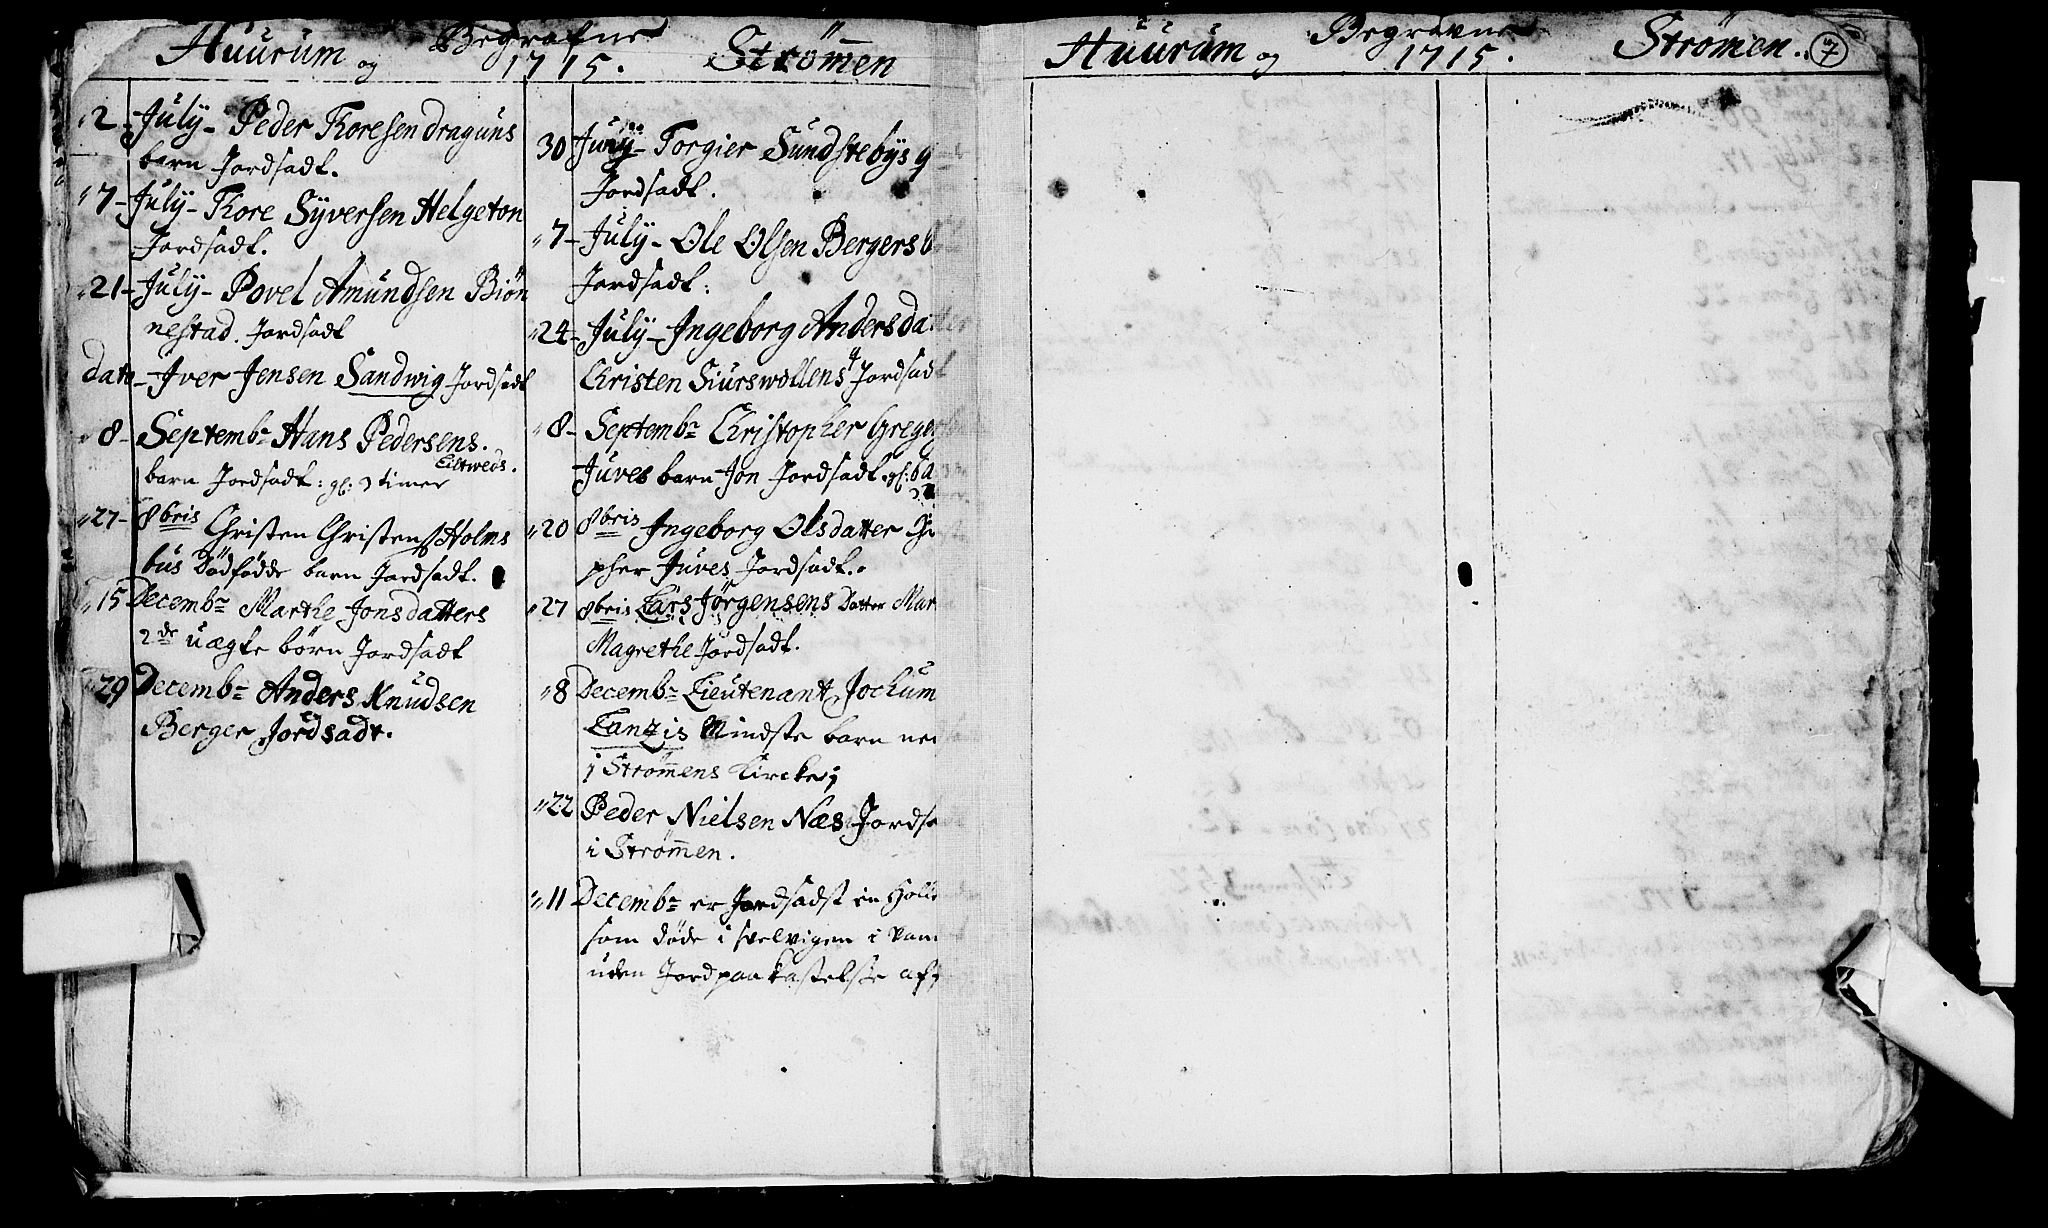 Huurum og Begrafne 1715. Strömen
2 July - Peder Thoresen draguns
barn Jordsadt.
7 - July - Thore Syversen Helgeton
Jordsadt.
21 - July - Povel Amundsen Biön
nestad. Jordsadt
dato - Iver Jensen Sandwig Jordsadt
8 - Septembr Hans Pedersens.
barn Jordsadt: gl: 3 timer
27 - 8bris Christen Christens Holms
bus Dödfödde barn Jordsadt.
15 Decembr Marthe Jonsdatters
2de uægte börn Jordsadt
29 Decembr Anders Knudsen
Berger Jordsadt.
30 Juny - Torgier Sundstebys q
Jordsadt.
7 - July - Ole Olsen Bergers
Jordsadt:
24 - July - Ingeborg Andersdatter
Christen Siurswollens Jordsadt
8 - Septembr Christopher Greger
Juves barn Jon Jordsadt. gl:
20 8bris Ingeborg Olsdatter
pher Juves Jordsadt.
27 8bris Lars Jörgensens Datter Mar
Magrethe Jordsadt.
8 Decembr Lieutenant Jochum
Lanzis Mindste barn
i Strömmens Kircke
22 Peder Nielsen Næs Jordsa
i Strömmen.
11 Decembr er Jordsadt en Holl
som döde i svelvigen i
uden Jordpaakastelse af
Huurum og Begravne 1715. Strömen. 7